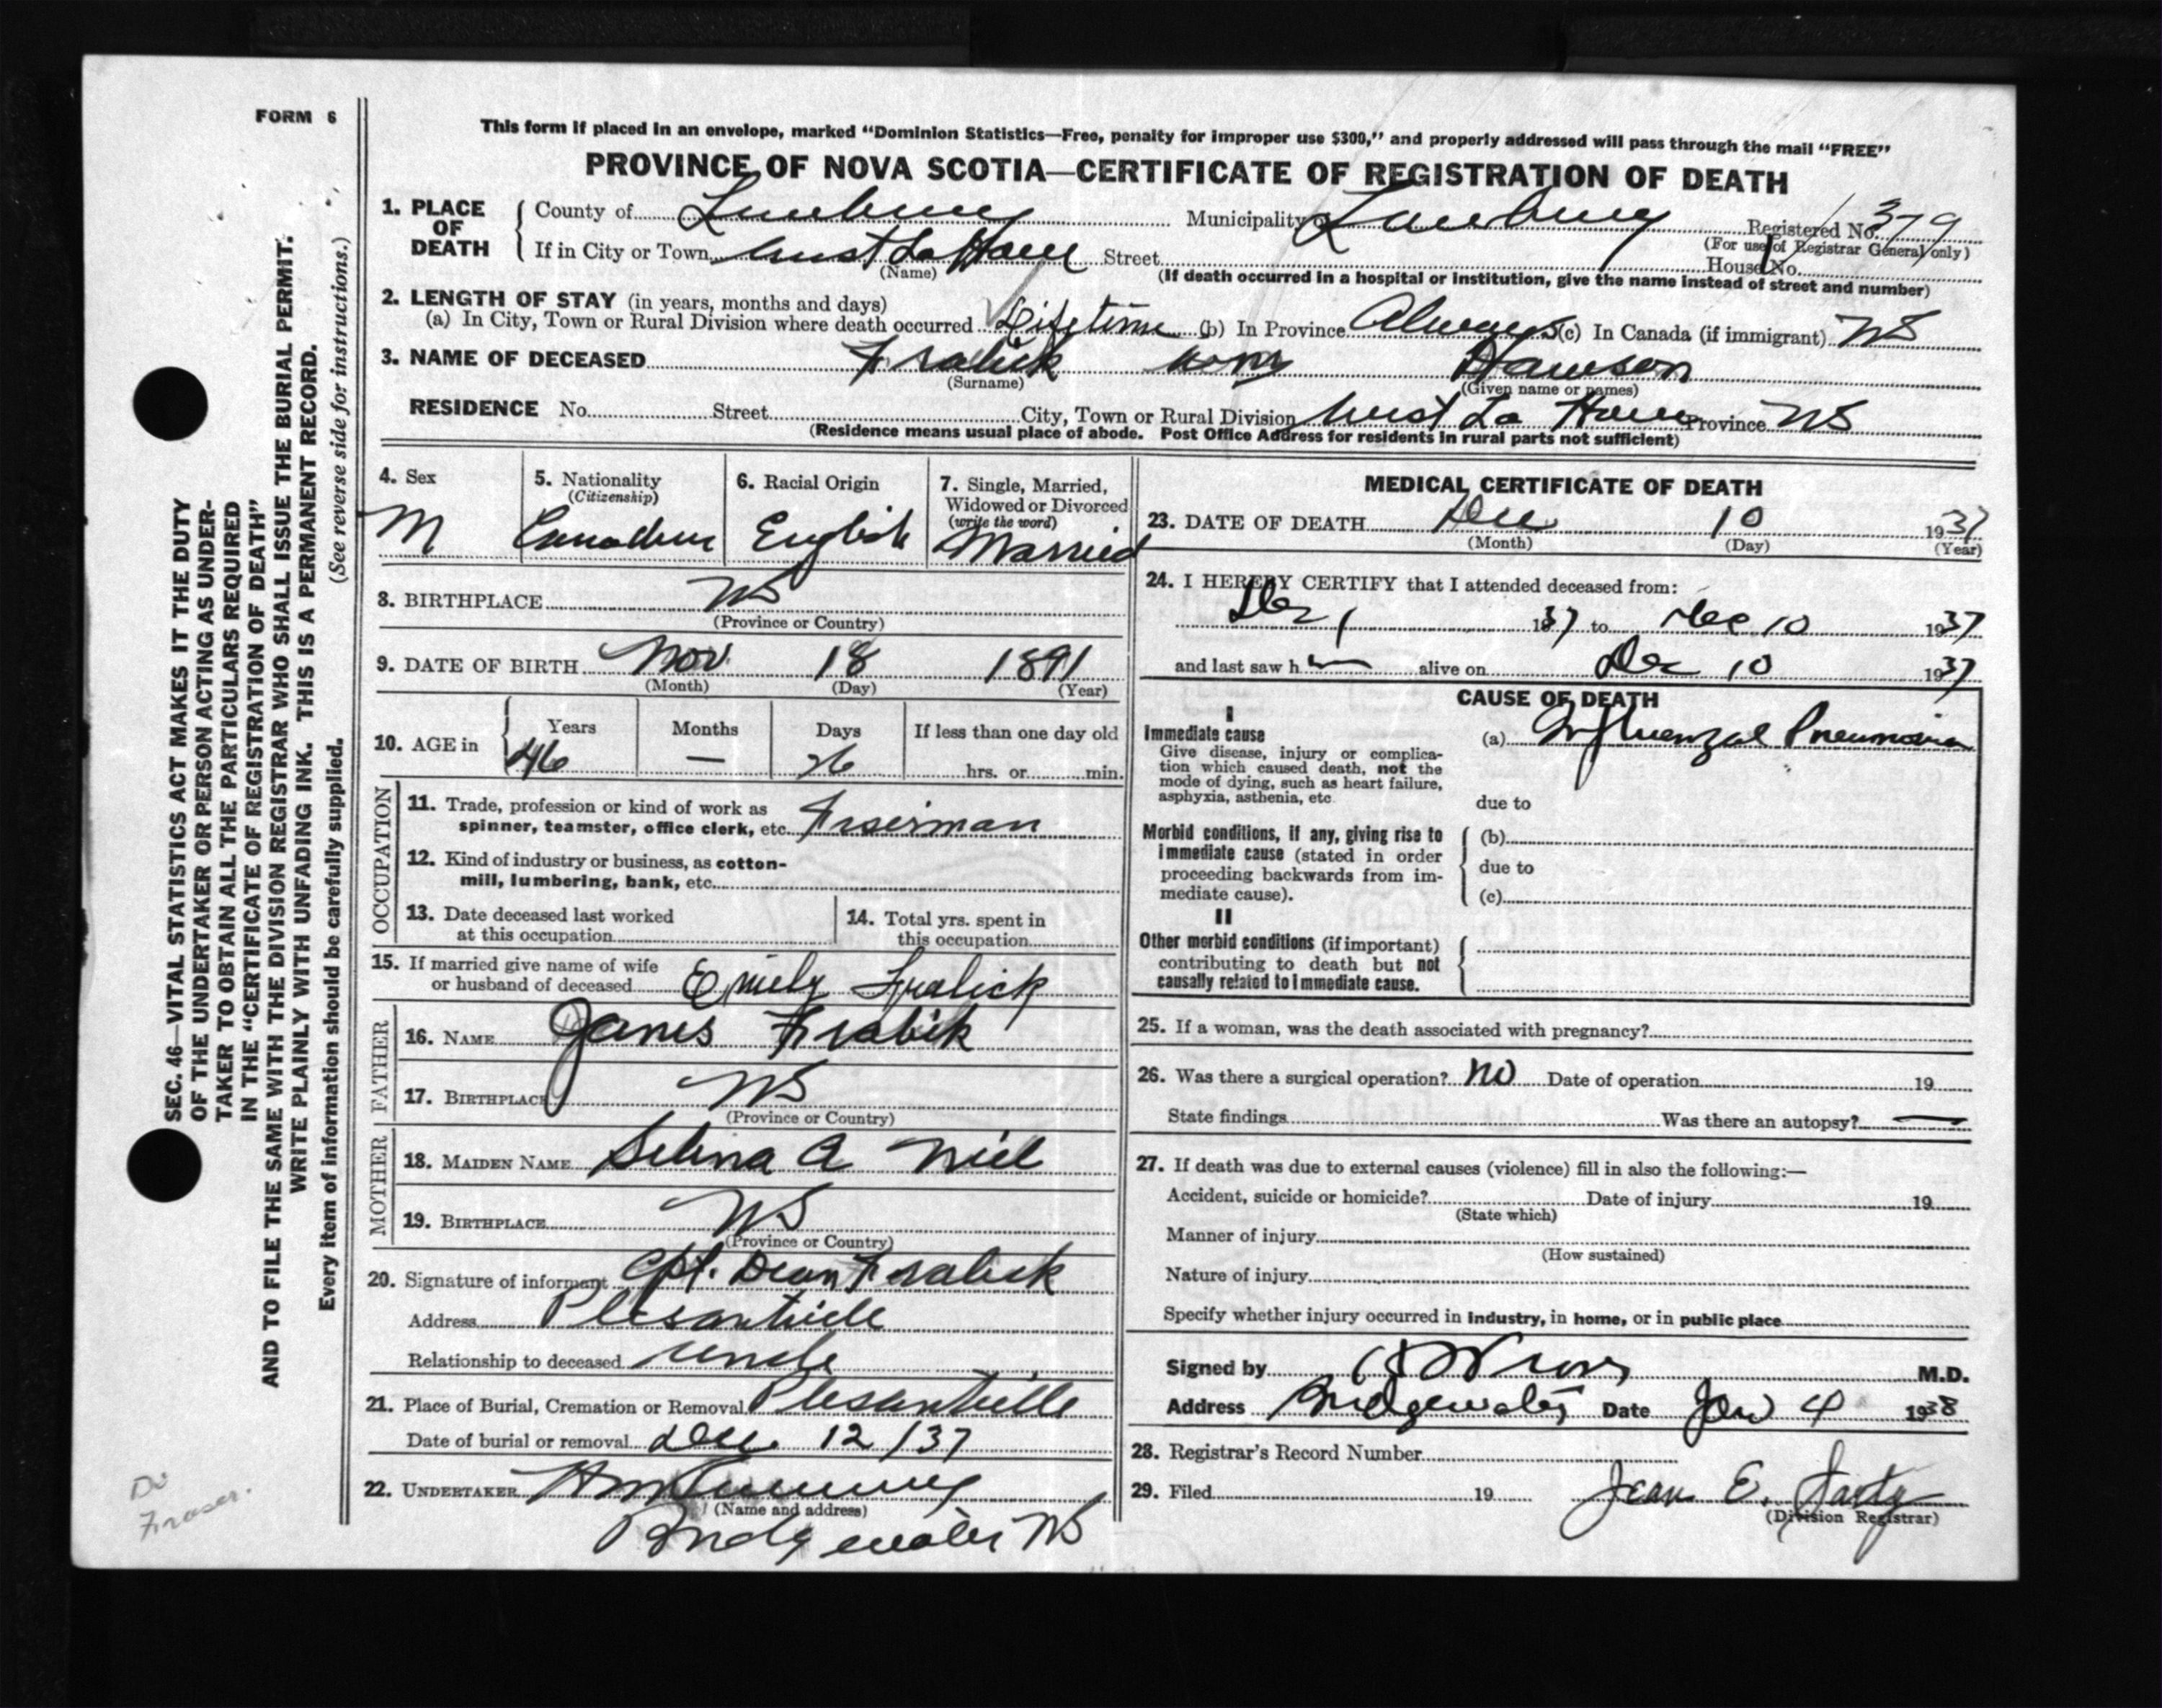 FORM 6
This form if placed in an envelope, marked "Dominion Statistics—Free, penalty for improper use $300," and properly addressed will pass through the mail "FREE"
PROVINCE OF NOVA SCOTIA—CERTIFICATE OF REGISTRATION OF DEATH
1. PLACE OF DEATH
County of Lunenburg Municipality of Lunenburg Registered No. 379
(For use of Registrar General only)
If in City or Town West La Have Street House No.
(Name) (If death occurred in a hospital or institution, give the name instead of street and number)
2. LENGTH OF STAY (in years, months and days)
(a) In City, Town or Rural Division where death occurred Lifetime (b) In Province Always (c) In Canada (if immigrant) NS
3. NAME OF DECEASED Fralick
(Surname) (Given name or names)
RESIDENCE No. Street City, Town or Rural Division West La Have Province NS
(Residence means usual place of abode. Post Office Address for residents in rural parts not sufficient)
4. Sex M
5. Nationality (Citizenship) Canadian
6. Racial Origin English
7. Single, Married, Widowed or Divorced (write the word) Married
8. BIRTHPLACE NS
(Province or Country)
9. DATE OF BIRTH Nov. 18 1891
(Month) (Day) (Year)
10. AGE in Years Months Days If less than one day old
46 — 26 hrs. or min.
OCCUPATION
11. Trade, profession or kind of work as
spinner, teamster, office clerk, etc. Fiserman
12. Kind of industry or business, as cotton-
mill, lumbering, bank, etc.
13. Date deceased last worked
at this occupation
14. Total yrs. spent in
this occupation
15. If married give name of wife
or husband of deceased Emily Fralick
FATHER
16. NAME James Fralick
17. BIRTHPLACE NS
(Province or Country)
MOTHER
18. MAIDEN NAME Selena A
19. BIRTHPLACE NS
(Province or Country)
20. Signature of informant Cpt. Dean Fralick
Address Plesantville
Relationship to deceased uncle
21. Place of Burial, Cremation or Removal Plesantville
Date of burial or removal Dec 12/37
22. UNDERTAKER
(Name and address)
Bridgewater NS
MEDICAL CERTIFICATE OF DEATH
23. DATE OF DEATH Dec 10 1937
(Month) (Day) (Year)
24. I HEREBY CERTIFY that I attended deceased from:
Dec 1 1937 to Dec 10 1937
and last saw h im alive on Dec 10 1937
CAUSE OF DEATH
I
Immediate cause (a) Influenzal Pneumonia
Give disease, injury or complica-
tion which caused death, not the
mode of dying, such as heart failure,
asphyxia, asthenia, etc
due to
Morbid conditions, if any, giving rise to
immediate cause (stated in order
proceeding backwards from im-
mediate cause).
(b)
due to
(c)
II
Other morbid conditions (if important)
contributing to death but not
causally related to immediate cause.
25. If a woman, was the death associated with pregnancy?
26. Was there a surgical operation? no Date of operation 19
State findings Was there an autopsy? —
27. If death was due to external causes (violence) fill in also the following:—
Accident, suicide or homicide? Date of injury 19
(State which)
Manner of injury
(How sustained)
Nature of injury
Specify whether injury occurred in industry, in home, or in public place
Signed by M.D.
Address Bridgewater Date Jan 4 1938
28. Registrar's Record Number
29. Filed 19 Jean E.
(Division Registrar)
SEC. 46—VITAL STATISTICS ACT MAKES IT THE DUTY
OF THE UNDERTAKER OR PERSON ACTING AS UNDER-
TAKER TO OBTAIN ALL THE PARTICULARS REQUIRED
IN THE "CERTIFICATE OF REGISTRATION OF DEATH"
AND TO FILE THE SAME WITH THE DIVISION REGISTRAR WHO SHALL ISSUE THE BURIAL PERMIT.
WRITE PLAINLY WITH UNFADING INK. THIS IS A PERMANENT RECORD.
Every item of information should be carefully supplied. (See reverse side for instructions.)
Dr
Fraser.